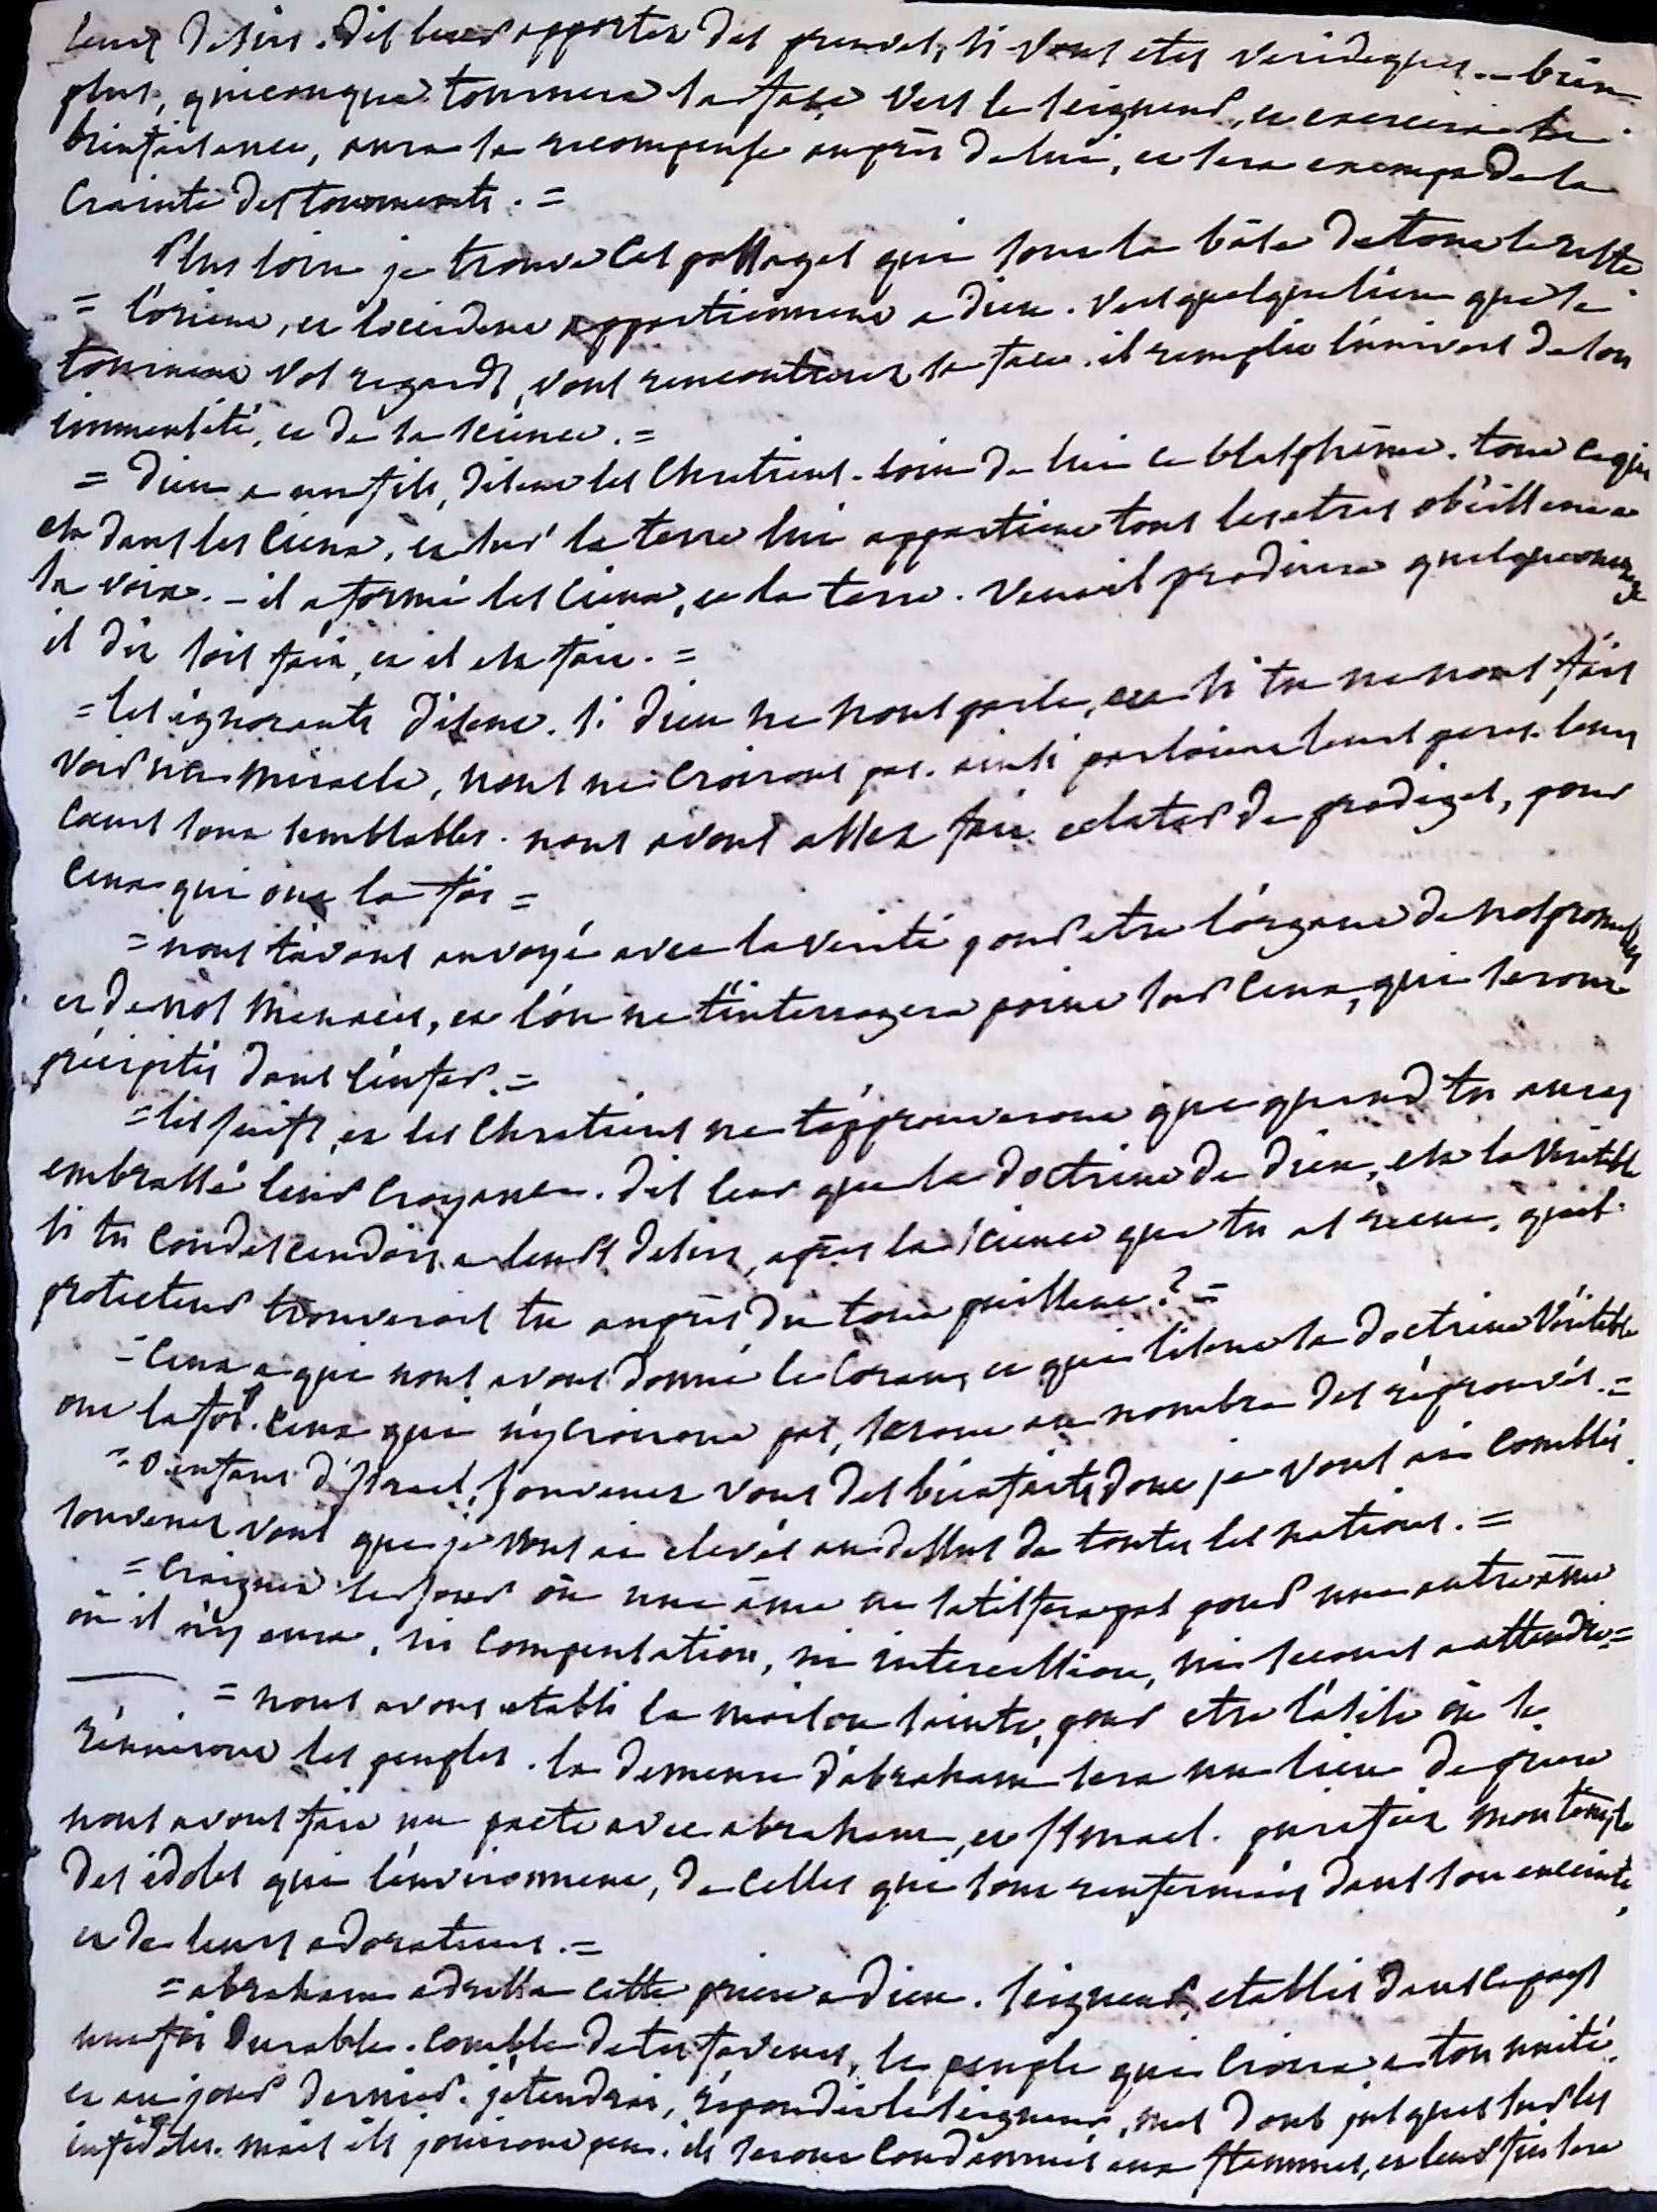 leurs desirs. dis leur apporter des preuves, si vous etes veridiques. — bien
plus, quiconque tournera sa face vers le seigneur, et exercera la
bienfaisance, aura sa recompense auprès de lui, et sera exempt de la
crainte des tourments. =
Plus loin je trouve ces passages qui sont la bâse de tout le reste
= l'orient, et l'occident appartiennent a dieu. vers quelque lieu que se
tournent vos regards, vous rencontrerez sa face. il remplit l'univers de son
immensité, et de sa science. =
= dieu a un fils, disent les Chretiens. loin de lui ce blasphême. tout ce qui
est dans les cieux, et sur la terre lui appartient tous les etres obéissent a
sa voix. — il a formé les cieux, et la terre. veut il produire quelque ouvrage
il dit sois fait, et il est fait. =
= les ignorants disent. si dieu ne nous parle, ou si tu ne nous fais
voir un miracle, nous ne croirons pas. ainsi parloient leurs peres. leurs
cœurs sont semblables. nous avons assez fait eclater de prodiges, pour
ceux qui ont la foi =
= nous t'avons envoyé avec la verité pour etre l'organe de nos promesses
et de nos menaces, et l'on ne t'interrogera point sur ceux, qui seront
précipités dans l'enfer. =
= les juifs, et les Chretiens ne t'approuveront que quand tu auras
embrassé leur croyance. dis leur que la doctrine de dieu, est la veritable
si tu condescendois a leurs desirs, après la science que tu as recue, quel
protecteur trouverois tu auprès du tout puissant ? =
= ceux a qui nous avons donné le Coran, et qui lisent sa doctrine véritable
ont la foi. ceux qui n'y croiront pas, seront au nombre des réprouvés. =
= o enfans d'Israel, souvenez vous des bienfaits dont je vous ai comblés
souvenez vous que je vous ai elevés au dessus de toutes les nations. =
= craignez le jour où une âme ne satisfera pas pour une autre âme
où il n'y aura, ni compensation, ni intercession, ni secours a attendre =
= nous avons etabli la maison sainte, pour etre l'asile où se
réuniront les peuples. la demeure d'abraham sera un lieu de priere
nous avons fait un pacte avec abraham, et Ismael. purifiez mon temple
des idoles qui l'environnent, de celles qui sont renfermées dans son enceinte,
et de leurs adorateurs. =
= abraham adressa cette priere a dieu. seigneur, etablis dans ce pays
une foi durable. comble de tes faveurs, le peuple qui croira a ton unité,
et au jour dernier. j'etendrai, répondit le seigneur, mes dons jusques sur les
infideles. mais ils jouiront peu. ils seront condamnés aux flammes, et leur fin sera